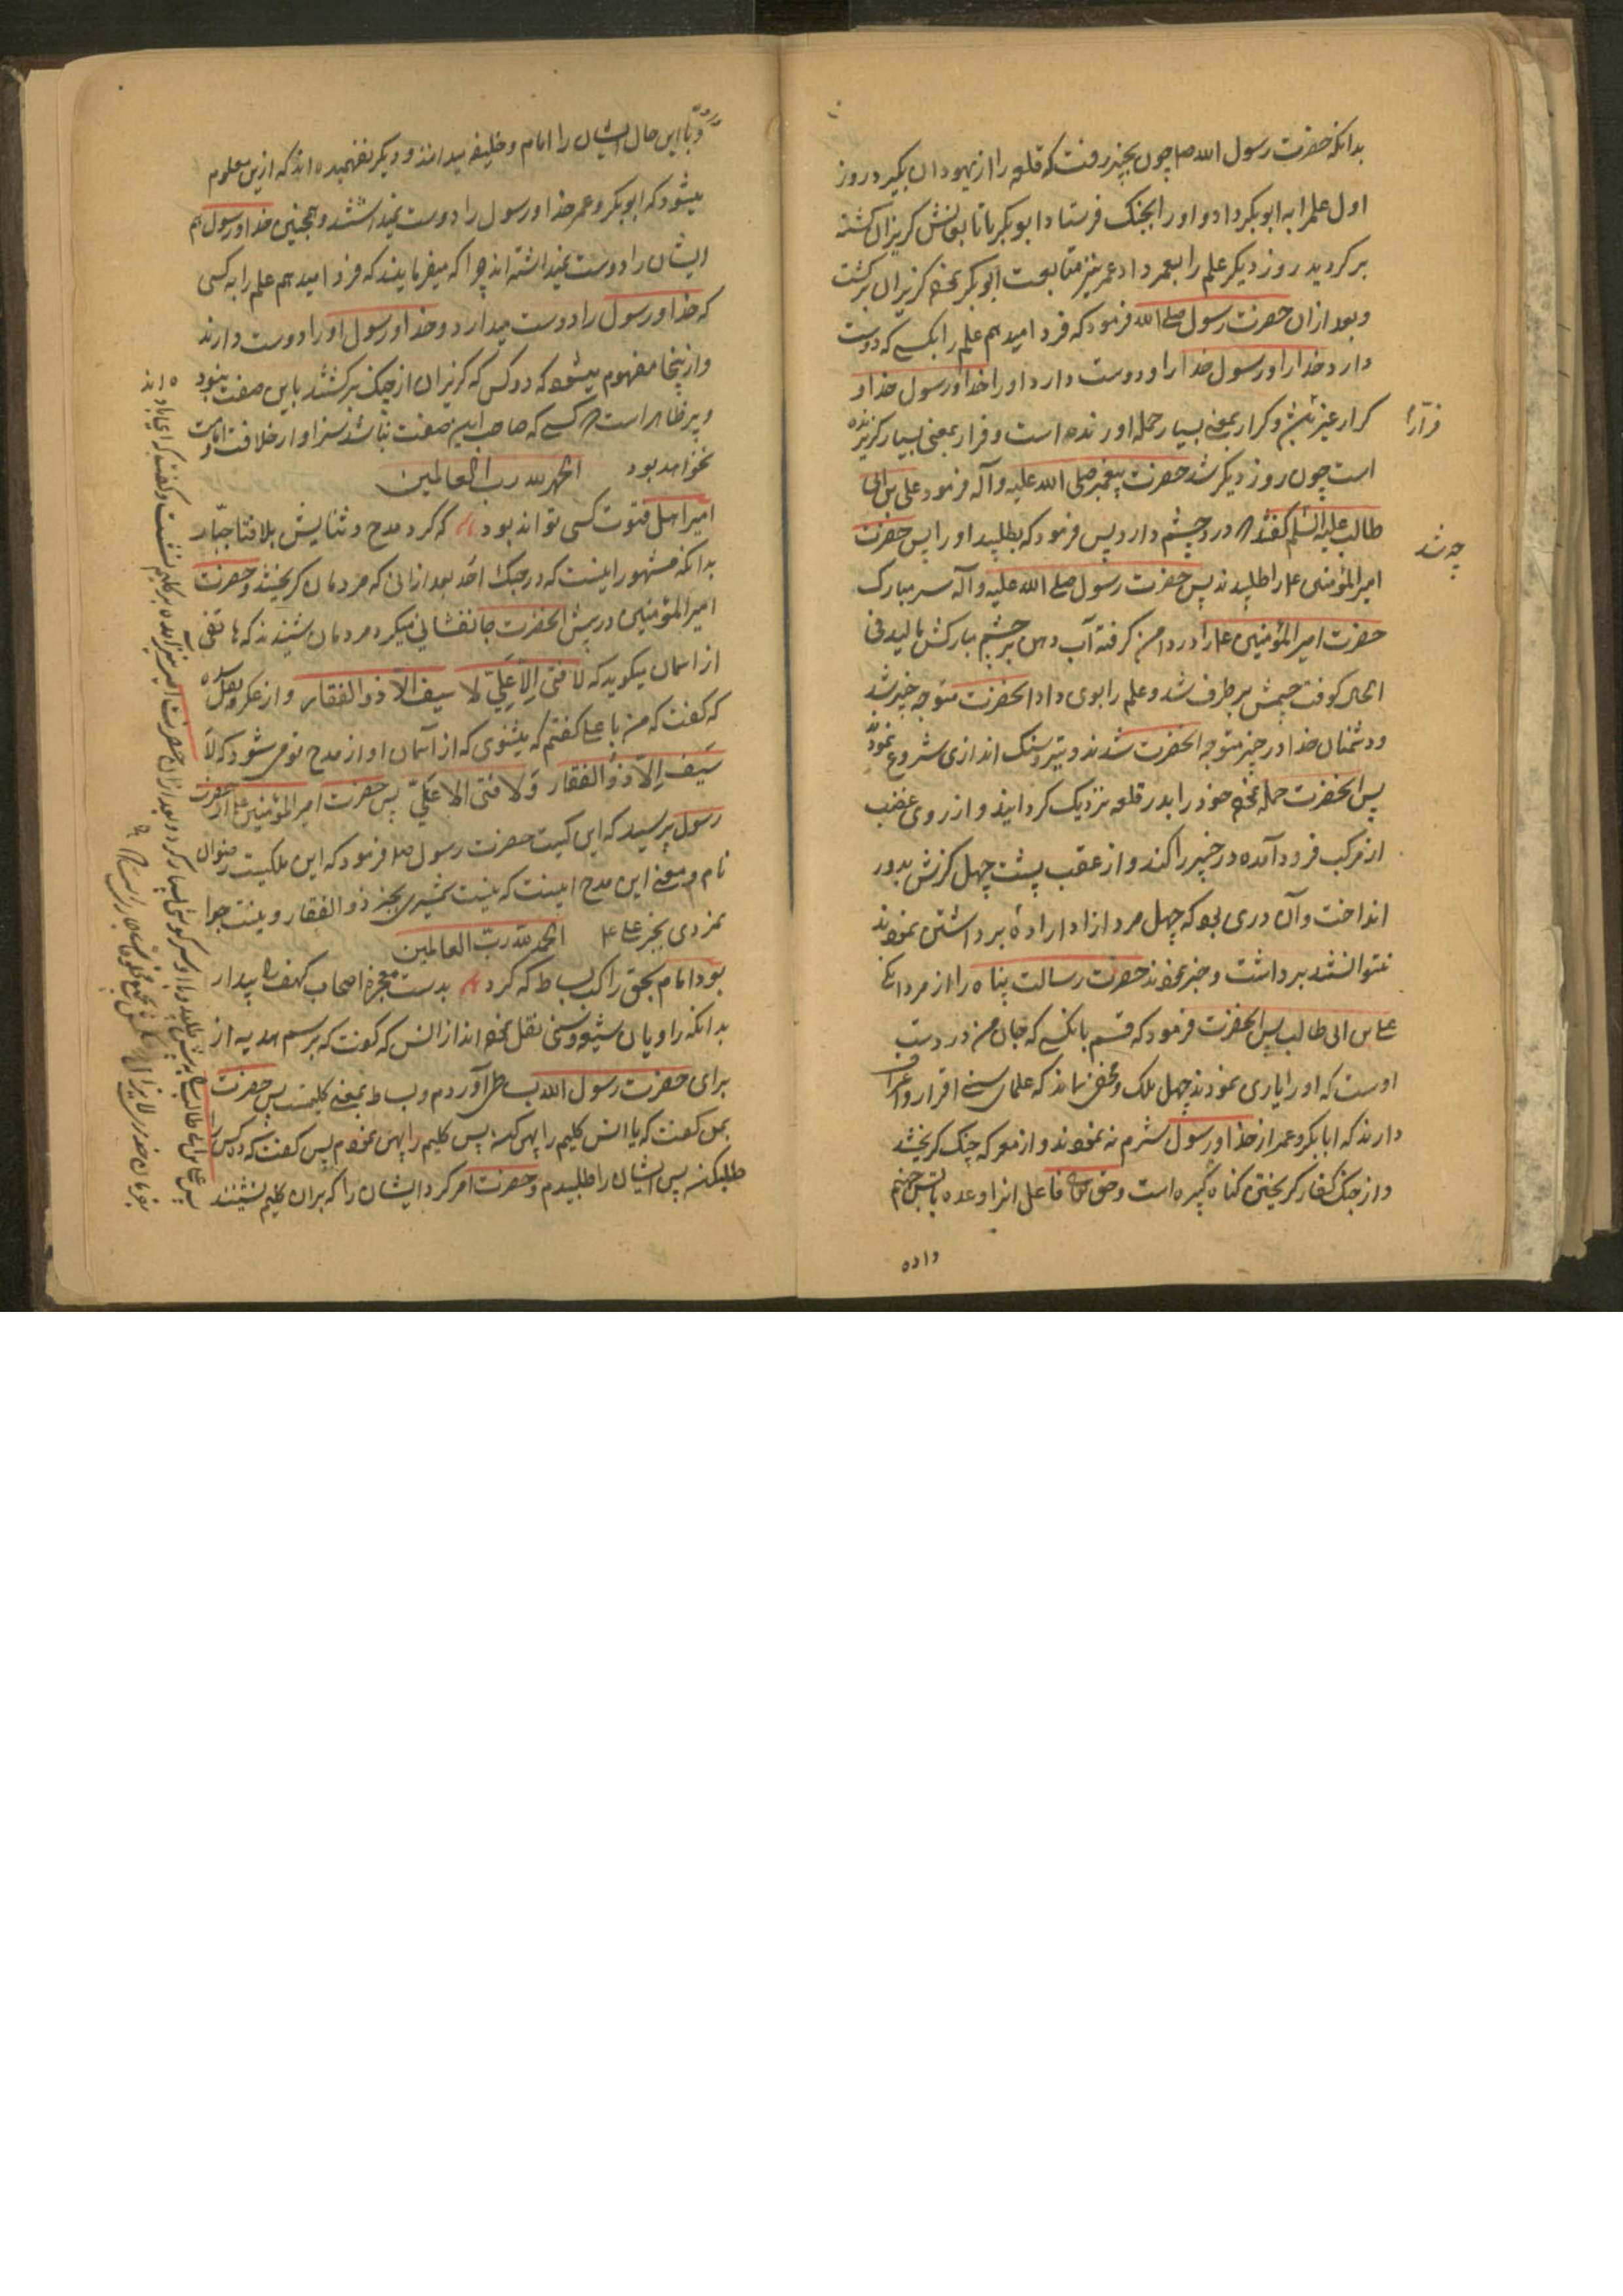 بدانکه حضرت رسول الله صلم چون بخیبر رفت که قلعه را از یهودان بگیرد روز
اول علم را به ابوبکر داد و او را بجنک فرستاد ابوبکر با تابعانش کریزان کشته
برکردید روز دیکر علم را بعمر داد عمر نیز متابعت ابوبکر نموده کریزان برکشت
و بعد ازان حضرت رسول صلی الله فرمود که فردا میدهم علم را بکسی که دوست
دارد خدا را و رسول خدا را و دوست دارد او را خدا و رسول خدا و
کرار غیر فرار و کرار بمعنی بسیار حمله اورنده است و فرار بمعنی بسیار کریزنده
است چون روز دیکر شد حضرت پیغمبر صلی الله علیه و آله فرمود علی بن ابی
طالب علیه السلم کفتند درد چشم دارد پس فرمود که بطلبید او را پس حضرت
امیر المؤمنین ع را طلبیدند پس حضرت رسول صلی الله علیه و آله سر مبارک
حضرت امیر المؤمنین ع را در دامن کرفته آب دهن بر چشم مبارکش مالید فی
الحال کوفت چشمش برطرف شد و علم را بوی داد آنحضرت متوجه خیبر شد
و دشمنان خدا در خیبر متوجه آنحضرت شدند و تیر و سنک اندازی شروع نمودند
پس آنحضرت حمله نموده خود را بدر قلعه نزدیک کردانید و از روی غضب
از مرکب فرود آمده در خیبر را کند و از عقب پشت چهل کزش بدور
انداخت و آن دری بود که چهل مرد ازاد اراده برداشتن نمودند
نتوانستند برداشت و خبر نمودند حضرت رسالت پناه را از مردانکی
علی بن ابی طالب پس آنحضرت فرمود که قسم بانکسی که جان من در دست
اوست که او را یاری نمودند چهل ملک و مخفی نماند که علمای سنی اقرار و اعتراف
دارند که ابابکر و عمر از خدا و رسول شرم نه نمودند و از معرکه جنک کریختند
و از جنک کفار کریختن کناه کبیره است و حق تعالی فاعل انرا وعده باتش جهنم
داده
چه شد
و با این حال ایشان را امام و خلیفه میدانند و دیکر نفهمیده اند که ازین معلوم
میشود که ابوبکر و عمر خدا و رسول را دوست نمیداشتند و همچنین خدا و رسول هم
ایشان را دوست نمیداشته اند چرا که میفرمایند که فردا میدهم علم را به کسی
که خدا و رسول را دوست میدارد و خدا و رسول او را دوست دارند
و ازینجا مفهوم میشود که دو کس که کریزان از جنک برکشتند باین صفت نبوده اند
و پر ظاهر است کسی که صاحب این صفت نباشد سزاوار خلافت و امامت
نخواهد بود الحمد لله رب العالمین
امیر اهل فتوت کسی تواند بود که کرد مدح و ثنایش بلا فتا جبّار
بدانکه مشهور اینست که در جنک احد بعد از انی که مردمان کریختند و حضرت
امیر المؤمنین در پیش آنحضرت جانفشانی میکرد مردمان شنیدند که هاتفی
از اسمان میکوید که لا فتی الّا علیّ لا سیف الّا ذو الفقار و از عکرمه نقل شده
که کفت که من با علی کفتم که میشنوی که از آسمان اواز مدح تو می شود که لا
سیف الّا ذو الفقار و لا فتی الا علیّ پس حضرت امیر المؤمنین ع از حضرت
رسول پرسید که این کیست حضرت رسول صلم فرمود که این ملکیست رضوان
نام و معنی این مدح اینست که نیست شمشیری بجز ذو الفقار و نیست جوا
نمردی بجز علی ع الحمد لله ربّ العالمین
بود امام بحق راکب بساط که کرد بدست معجزه اصحاب کهف را بیدار
بدانکه راویان شیعه و سنی نقل نموده اند از انس که کفت که برسم هدیه از
برای حضرت رسول الله بساطی آوردم و بساط بمعنی کلیمست پس حضرت
بمن کفت که یا انس کلیم را پهن کن پس کلیم را پهن نمودم پس کفت که ده کس را
طلب کن پس ایشان را طلبیدم و حضرت امر کرد ایشان را که بران کلیم نشینند